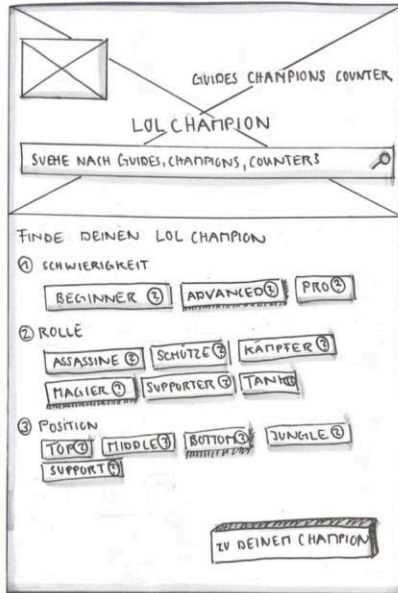 GUIDES CHAMPIONS COUNTER
LOL CHAMPION
SUCHE NACH GUIDES, CHAMPIONS, COUNTERS
FINDE DEINEN LOL CHAMPION
① SCHWIERIGKEIT
BEGINNER ? ADVANCED ? PRO ?
② ROLLE
ASSASSINE ? SCHÜTZE ? KÄMPFER ?
MAGIER ? SUPPORTER ? TANK ?
③ POSITION
TOP ? MIDDLE ? BOTTOM ? JUNGLE ?
SUPPORT ?
ZU DEINEM CHAMPION